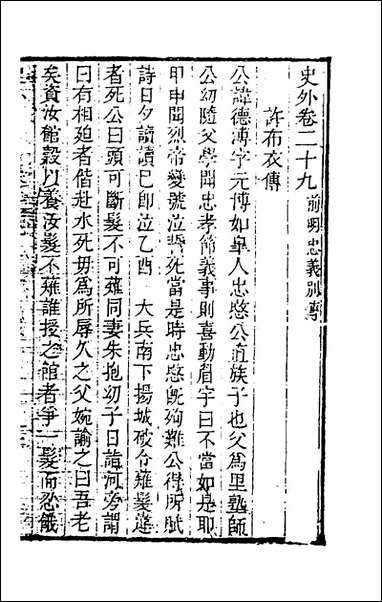 史外卷二十九 前明忠義別傳
許布衣傳
公諱德溥字元博如臯人忠愍公直族子也父爲里塾師
公幼隨父學聞忠孝節義事則喜動眉宇曰不當如是耶
甲申聞烈帝變號泣誓死當是時忠愍旣殉難公得所賦
詩日夕讀讀已即泣乙酉 大兵南下揚城破令薙髮違
者死公曰頭可斷髮不可薙同妻朱抱幼子日詣河旁謂
曰有相迫者偕赴水死毋爲所辱久之父婉諭之曰吾老
矣資汝館穀以養汝髮不薙誰授之館者爭一髮而忍餓